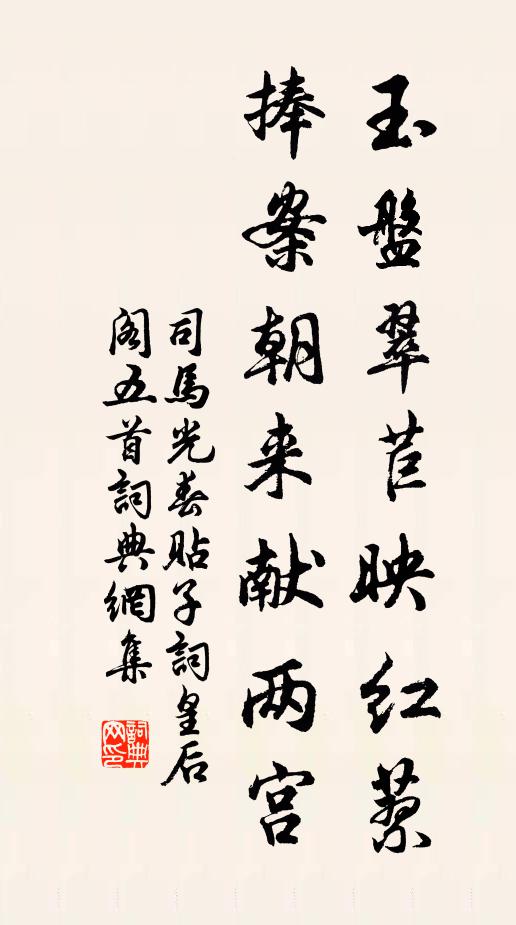 玉盤翠苣映红蓼
捧案朝来献两宫
司馬光春貼子詞皇后
阁五首詞典網集
詞典
网印